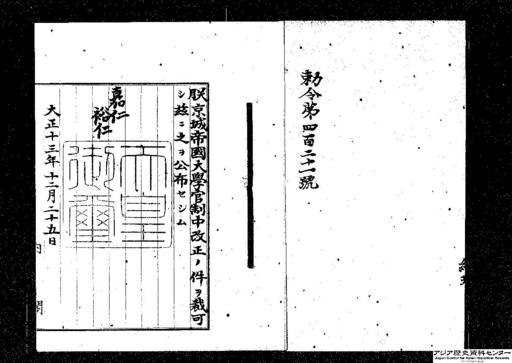 勅令第四百二十一號
朕京城帝國大學官制中改正ノ件ヲ裁可
シ茲ニ之ヲ公布セシム
嘉仁
裕仁
天皇
御璽
大正十三年十二月二十五日
内閣
アジア歴史資料センター
Japan Center for Asian Historical Records